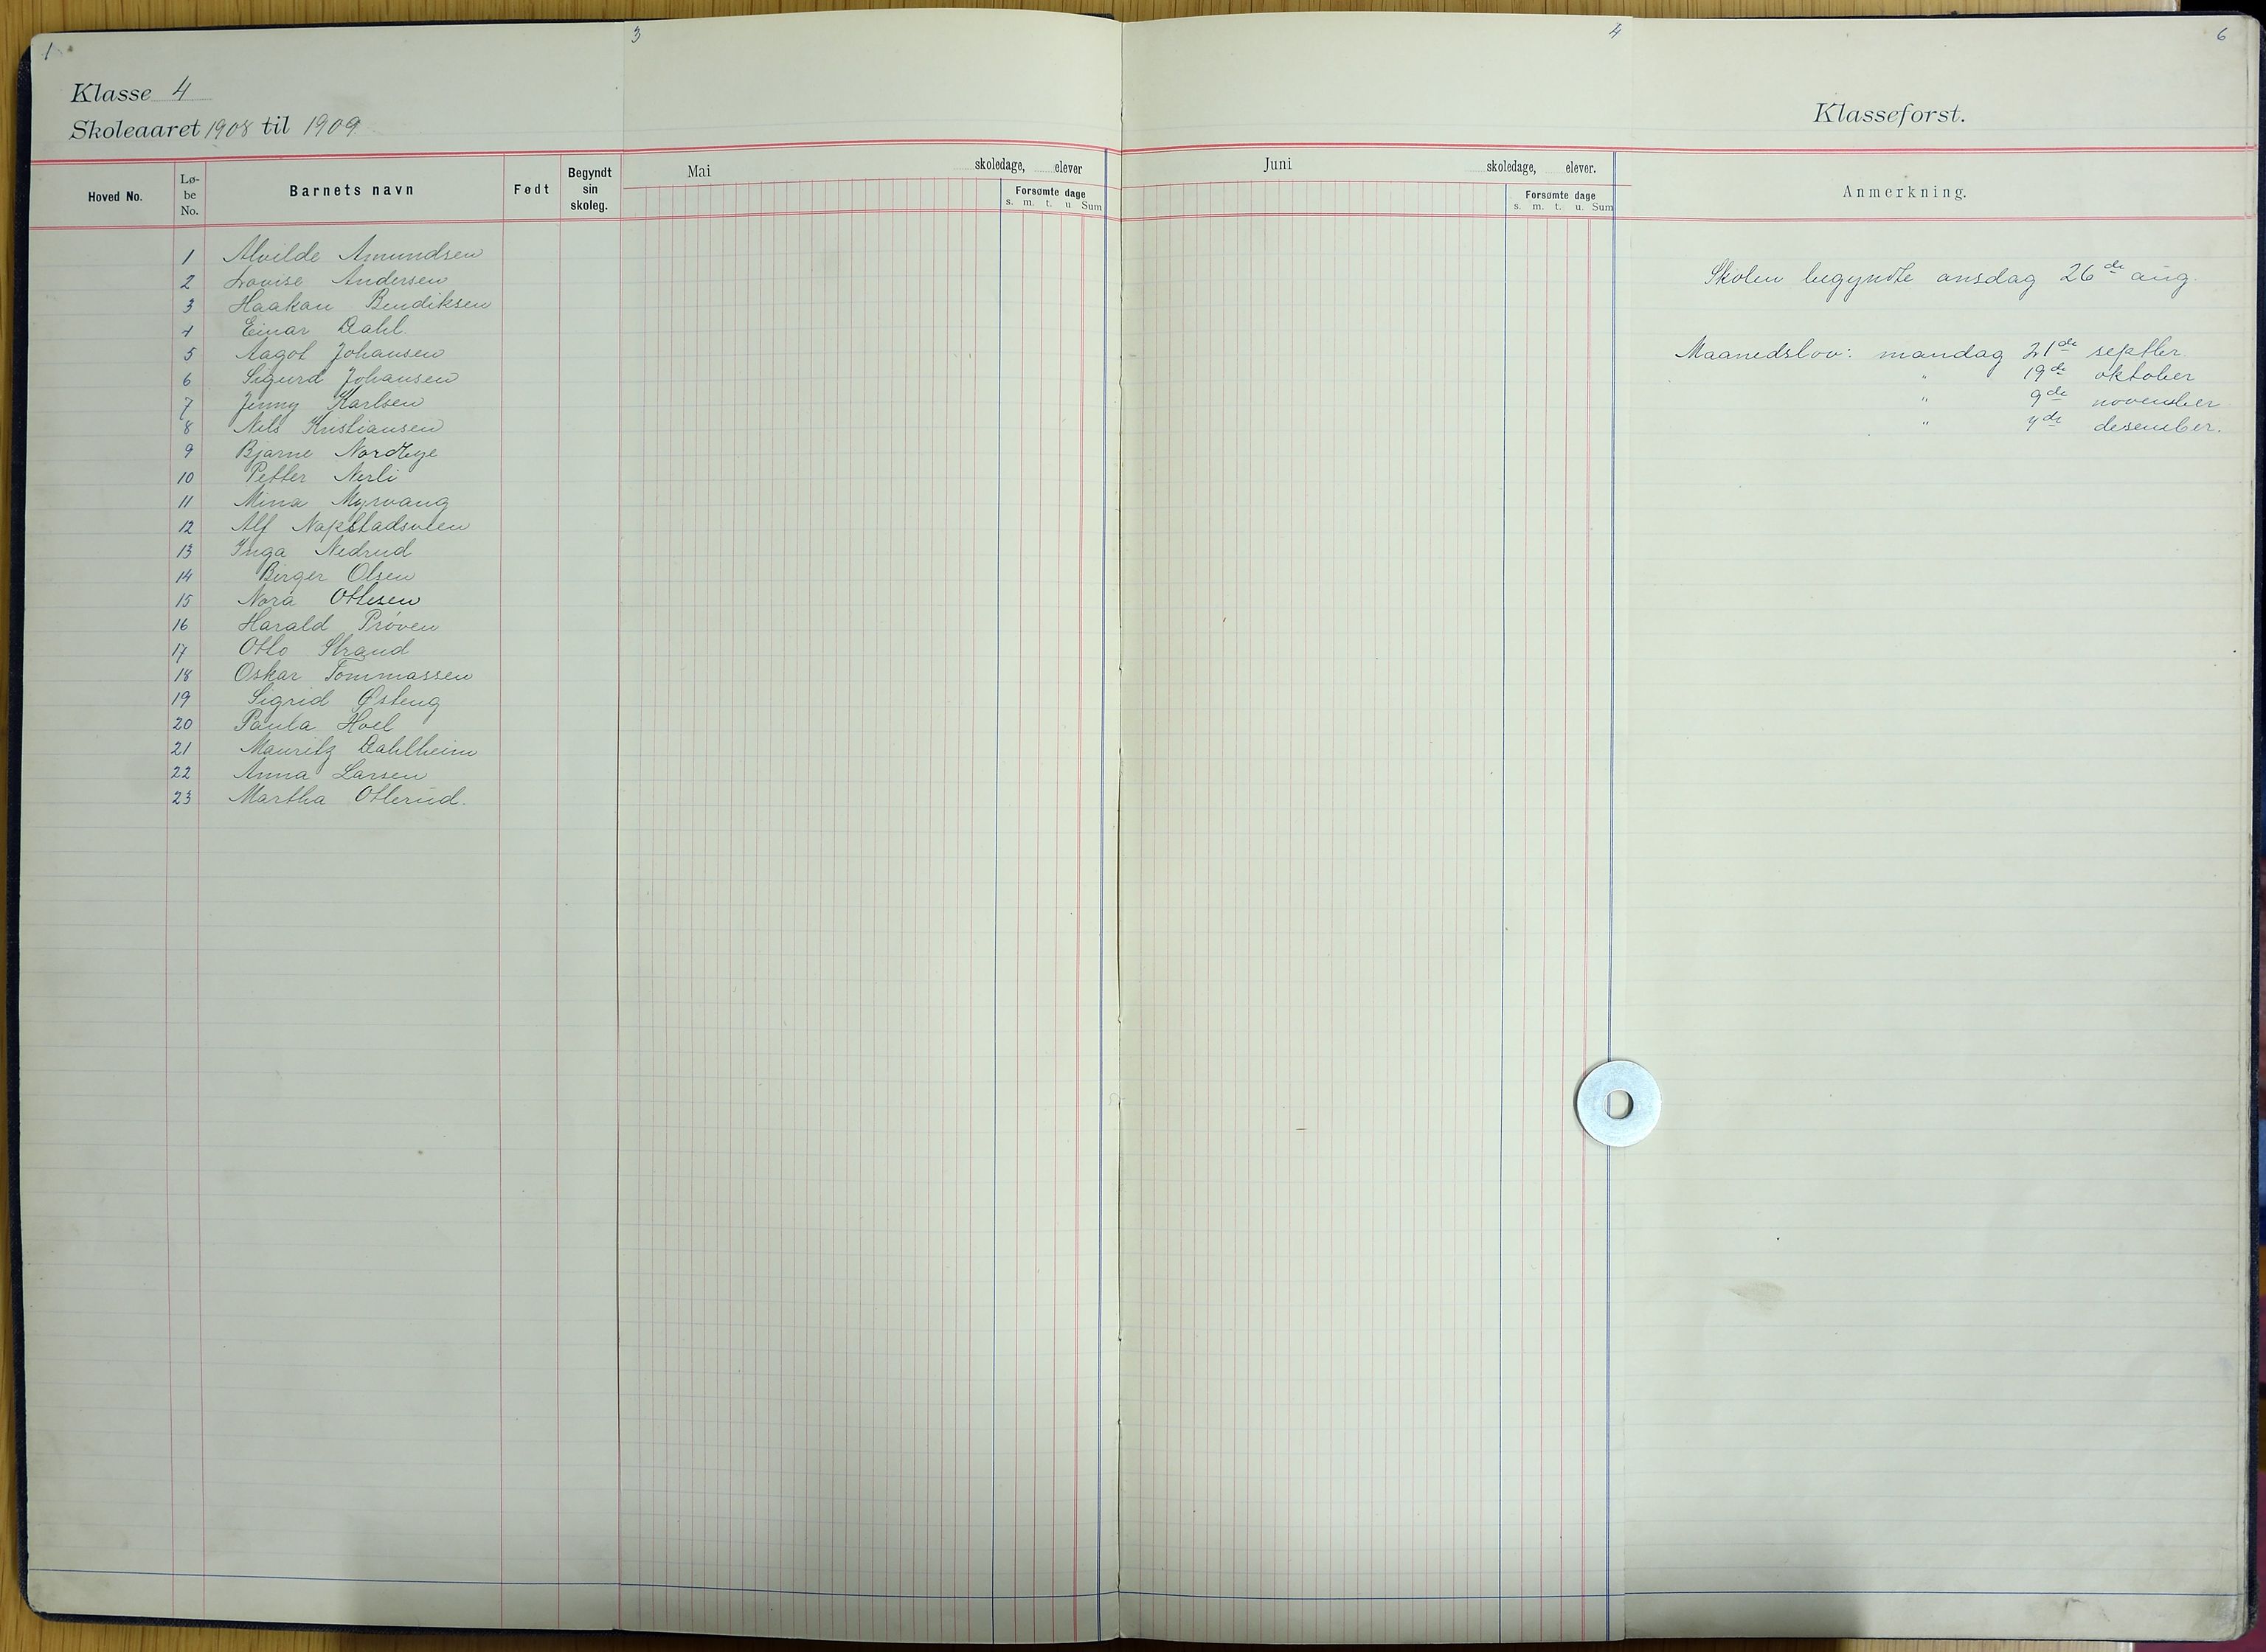 1
3
4
6
Klasse 4
Skoleaaret 1908 til 1909
Klasseforst.
Hoved No.
Lø-
be
No.
Barnets navn
Født
Begyndt
sin
skoleg.
Mai
skoledage, elever
Forsømte dage
s. m. t. u Sum
Juni
skoledage, elever.
Forsømte dage
s. m. t. u. Sum
Anmerkning.
1 Alvilde Amundsen
2 Lovise Andersen
3 Haakan Bendiksen
4 Einar Dahl.
5 Aagot Johansen
6 Sigurd Johansen
7 Jenny Karlsen
8 Nils Kristiansen
9 Bjarne Nordbye
10 Petter Nerli
11 Mina Myrvang
12 Alf Napstadsveen
13 Inga Nedrud
14 Birger Olsen
15 Nora Ottesen
16 Harald Prøven
17 Otto Strand
18 Oskar Tommassen
19 Sigrid Østeng
20 Paula Hoel
21 Mauritz Dahlheim
22 Anna Larsen
23 Martha Otterud.
Skolen begyndte onsdag 26de aug.
Maanedslov: mandag 21de septbr.
" 19de oktober
" 9de november
" 7de desember.